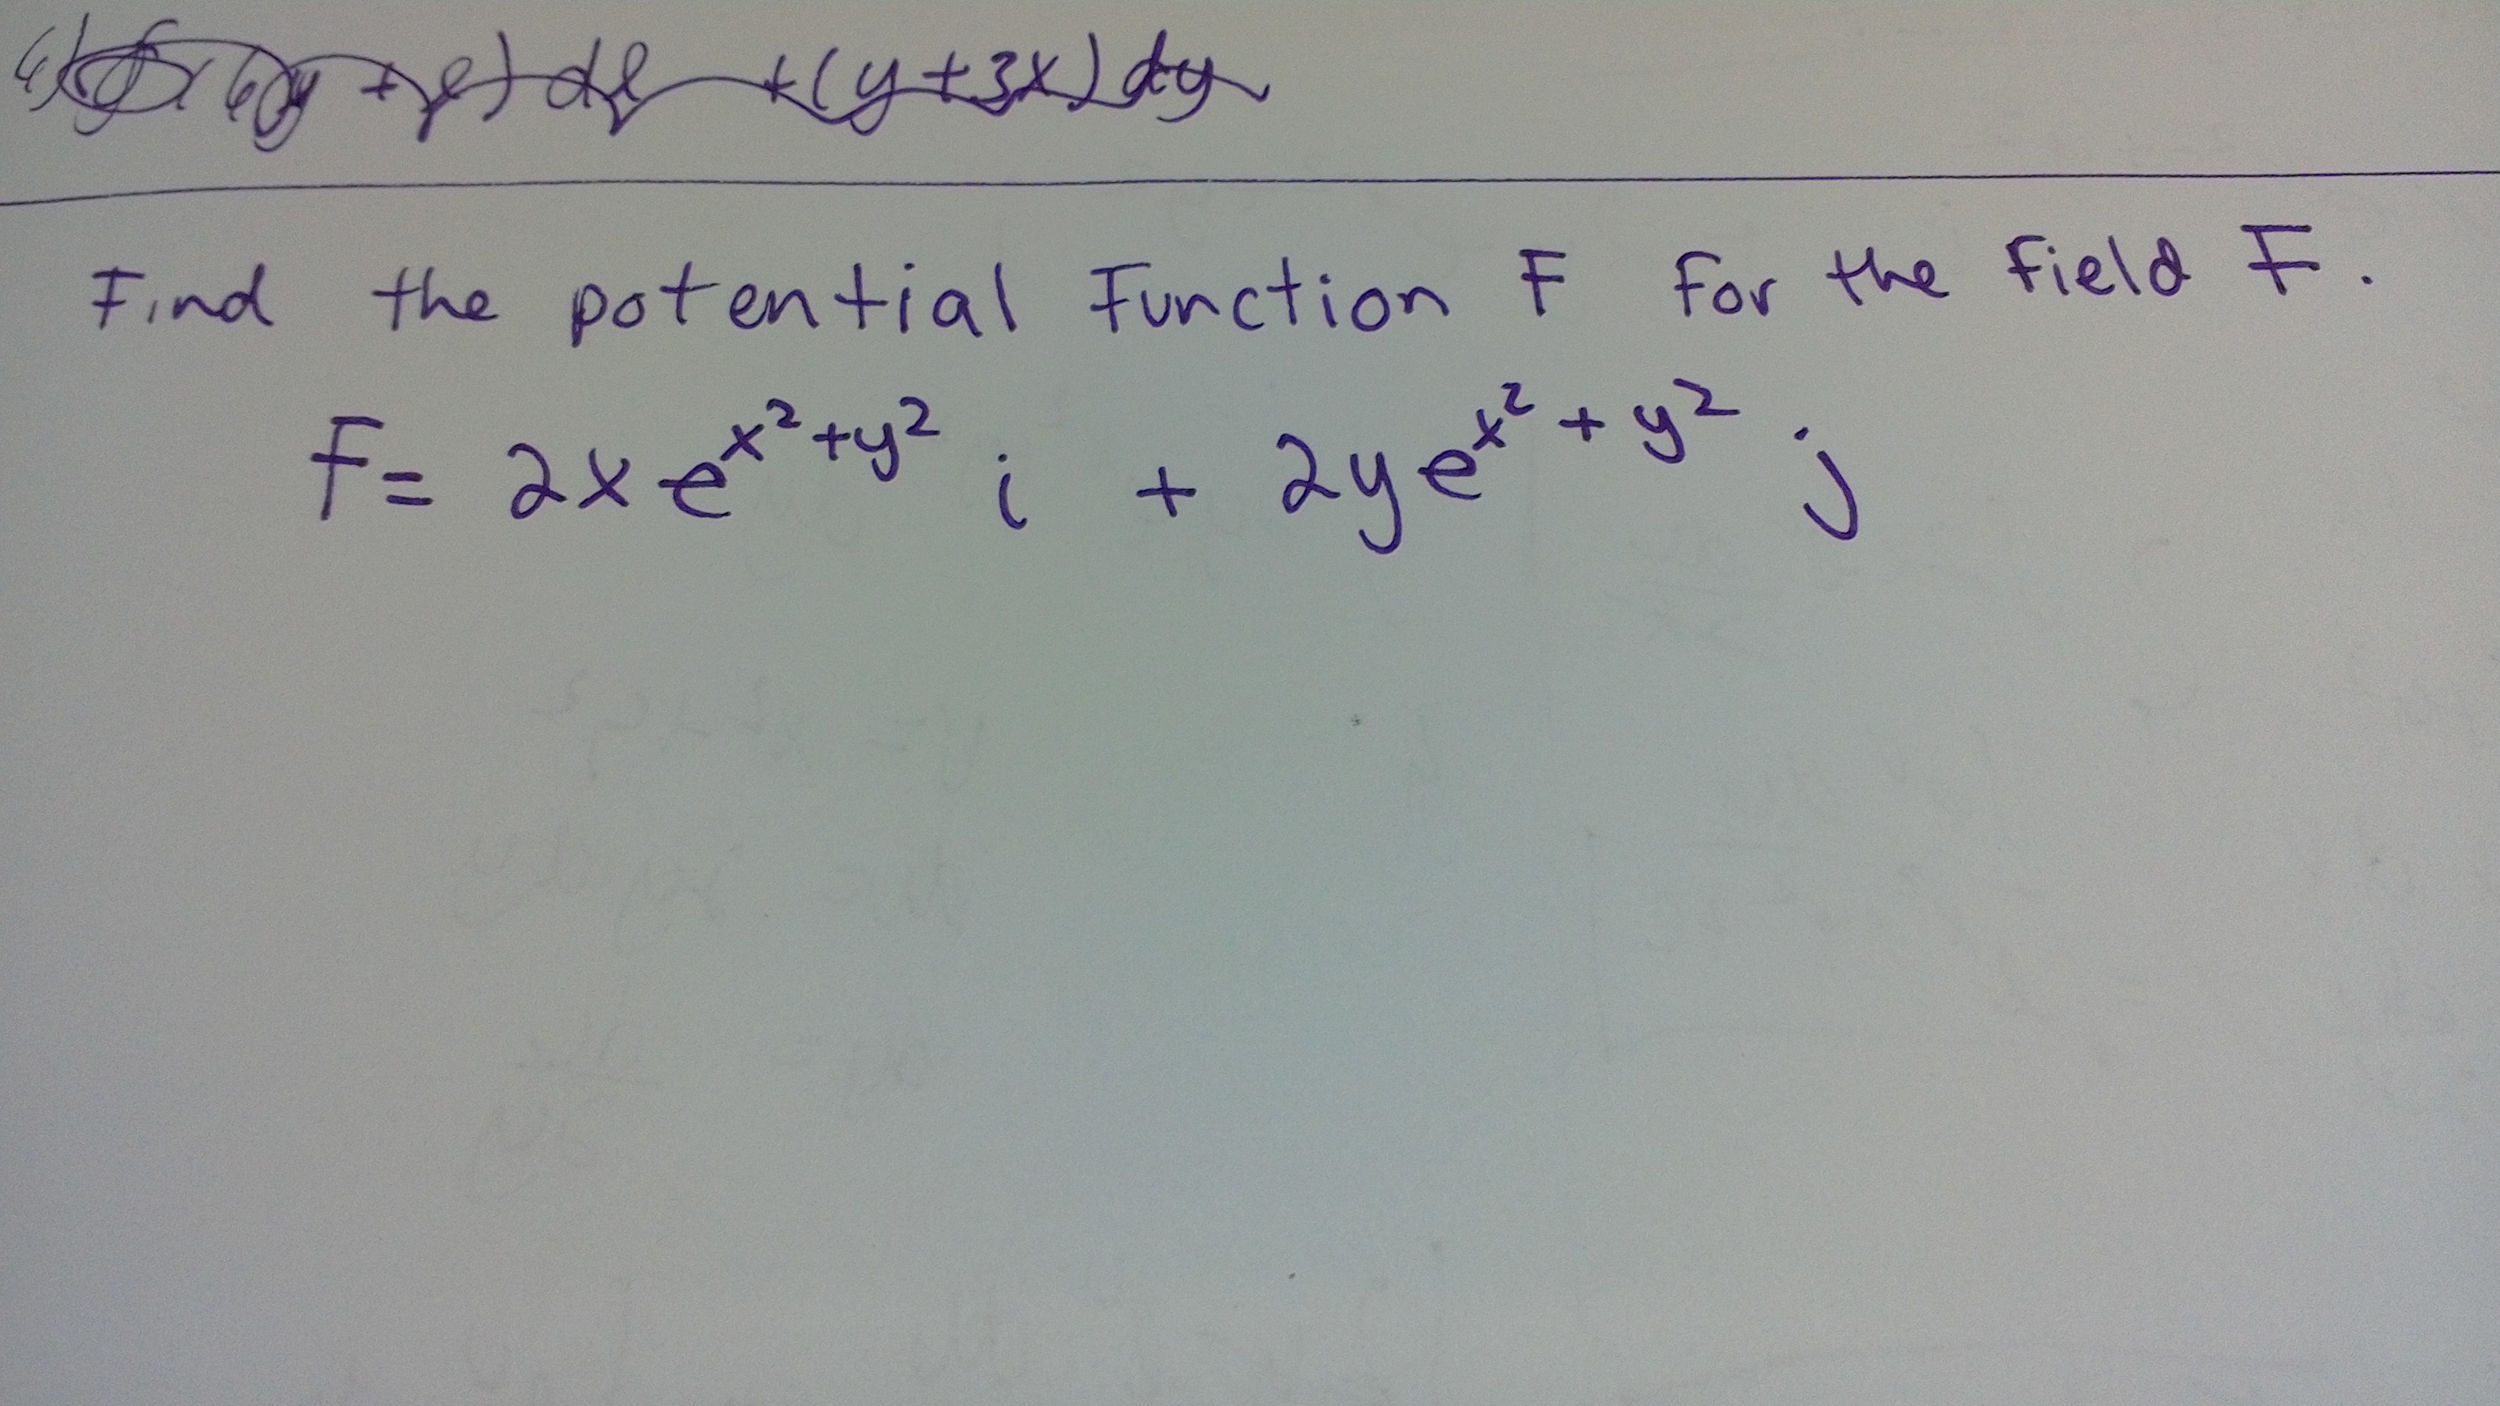 + (y+3x) dy
Find the potential Function F for the field F.
F= 2xe^{x^2+y^2} i + 2ye^{x^2+y^2} j